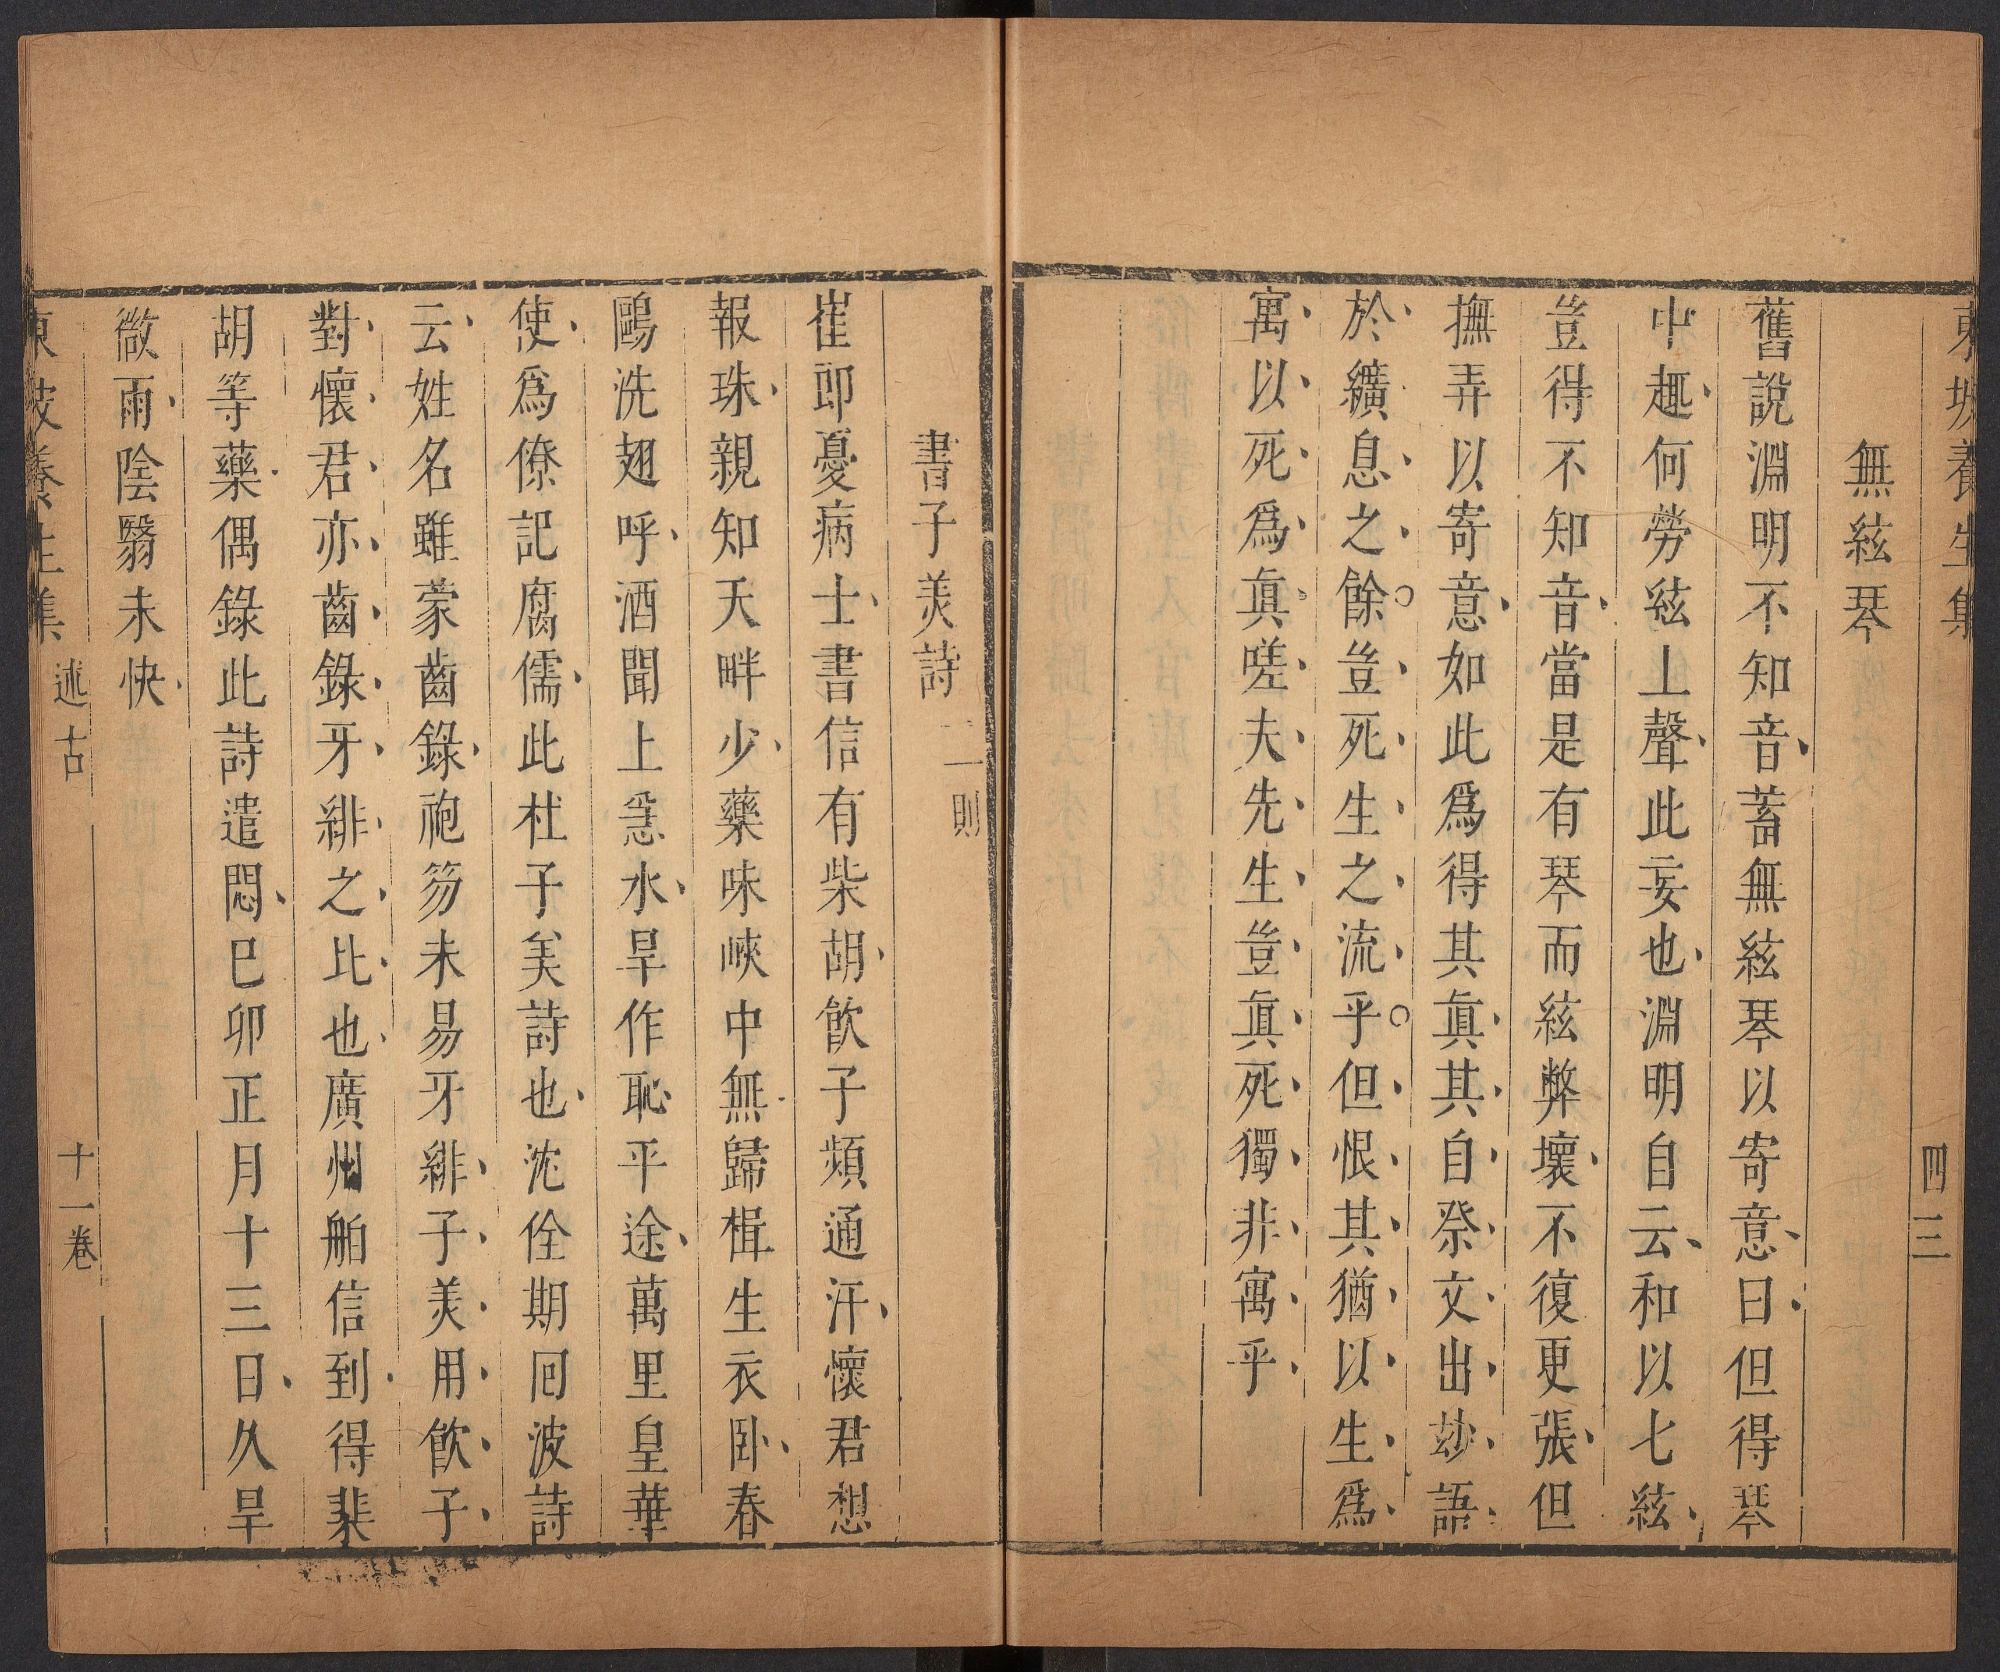 東坡養生集
四三
無絃琴
舊說淵明不知音蓄無絃琴以寄意曰但得琴
中趣何勞絃上聲此妄也淵明自云和以七絃
豈得不知音當是有琴而絃弊壞不復更張但
撫弄以寄意如此爲得其眞其自祭文出玅語
於纊息之餘豈死生之流乎但恨其猶以生爲
寓以死爲眞嗟夫先生豈眞死獨非寓乎
書子美詩 二則
崔郎憂病士書信有柴胡飲子頻通汗懷君想
報珠親知天畔少藥味峽中無歸楫生衣卧春
鷗洗翅呼酒聞上急水旱作恥平途萬里皇華
使爲僚記腐儒此杜子美詩也沈佺期囘波詩
云姓名雖蒙齒錄袍笏未易牙緋子美用飲子
對懷君亦齒錄牙緋之比也廣州舶信到得柴
胡等藥偶錄此詩遣悶巳卯正月十三日久旱
微雨陰翳未快
東坡養生集 述古 十一卷